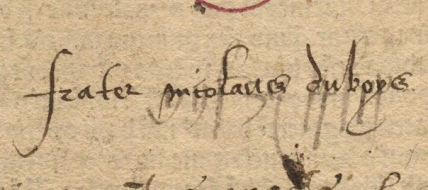 frater nicolaus duboys